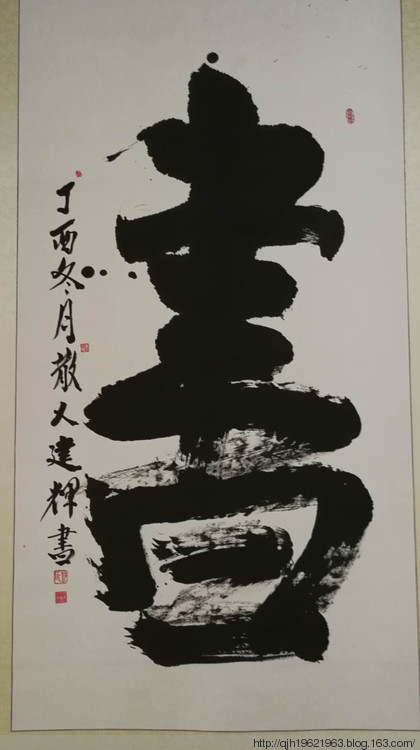 書
丁酉冬月散人建輝書
http://qjh19621963.blog.163.com